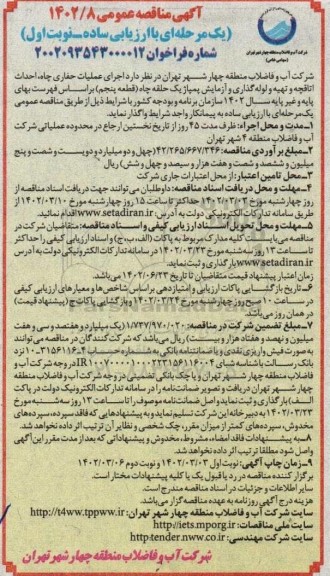 آگهی مناقصه عمومی ۱۴۰۲/۸
(یک مرحله‌ای با ارزیابی ساده_نوبت اول)
شماره فراخوان ۲۰۰۲۰۹۳۵۴۳۰۰۰۰۱۲
شرکت آب و فاضلاب منطقه چهار شهر تهران
(سهامی خاص)
شرکت آب و فاضلاب منطقه چهار شهر تهران در نظر دارد اجرای عملیات حفاری چاه، احداث
اتاقچه و تهیه و لوله‌گذاری و آزمایش پمپاژ یک حلقه چاه (قطعه پنجم) براساس فهرست بهای
پایه و غیر پایه سال ۱۴۰۲ سازمان برنامه و بودجه کشور با شرایط ذیل از طریق مناقصه عمومی
یک مرحله‌ای با ارزیابی ساده به پیمانکار واجد شرایط واگذار نماید.
۱_مدت و محل اجراء: ظرف مدت ۴۵ روز از تاریخ نخستین ارجاع در محدوده عملیاتی شرکت
آب و فاضلاب منطقه ۴ شهر تهران
۲_مبلغ برآوردی مناقصه: ۴۲/۲۶۵/۶۶۷/۳۴۶ (چهل و دو میلیارد و دویست و شصت و پنج
میلیون و ششصد و شصت و هفت هزار و سیصد و چهل و شش) ریال
۳_محل تامین اعتبار: از محل اعتبارات جاری شرکت
۴_مهلت و محل دریافت اسناد مناقصه: داوطلبان می‌توانند جهت دریافت اسناد مناقصه از
روز چهارشنبه مورخ ۱۴۰۲/۰۳/۰۳ حداکثر تا ساعت ۱۵ روز چهارشنبه مورخ ۱۴۰۲/۰۳/۱۰ از
طریق سامانه تدارکات الکترونیکی دولت به آدرس: www.setadiran.ir اقدام نمائید.
۵_مهلت و محل تحویل اسناد ارزیابی کیفی و اسناد مناقصه: متقاضیان شرکت در
مناقصه می‌بایست کلیه مدارک مربوط به پاکات (الف،ب،ج) و اسناد ارزیابی کیفی را حداکثر
تا ساعت ۱۳ روز سه‌شنبه مورخ ۱۴۰۲/۰۳/۲۳ در سامانه تدارکات الکترونیکی دولت به آدرس
www.setadiran.ir بارگذاری و ثبت نماید.
زمان اعتبار پیشنهاد قیمت متقاضیان تا تاریخ ۱۴۰۲/۰۶/۲۳ می‌باشد.
۶_تاریخ بازگشایی پاکات ارزیابی و امتیازدهی براساس شاخص‌ها و معیارهای ارزیابی کیفی
در ساعت ۱۰ صبح روز چهارشنبه مورخ ۱۴۰۲/۰۳/۲۴ و بازگشایی پاکات ج (پیشنهاد قیمت)
در همان روز می‌باشد.
۷_مبلغ تضمین شرکت در مناقصه: ۱/۷۳۷/۹۷۰/۰۲۰ (یک میلیارد و هفتصد و سی و هفت
میلیون و نهصد و هفتاد هزار و بیست) ریال می‌باشد که شرکت‌کنندگان در مناقصه می‌توانند
به صورت فیش واریزی نقدی و یا ضمانتنامه بانکی به شماره حساب
بانک رسالت با شناسه شبای
فاضلاب منطقه چهار شهر تهران و یا چک بانکی تضمینی در وجه شرکت آب و فاضلاب منطقه
چهار شهر تهران دریافت و تصویر ضمانت‌نامه را در سامانه تدارکات الکترونیک دولت در پاکت
الف) بارگذاری و ثبت نماید و اصل ضمانت‌نامه موصوف را تا ساعت ۱۳ روز سه‌شنبه مورخ
۱۴۰۲/۰۳/۲۳ به دبیرخانه این شرکت تسلیم نماید و به پیشنهادهایی که فاقد سپرده، سپرده‌های
مخدوش، سپرده‌های کمتر از میزان مقرر، چک شخصی و نظایر آن ترتیب اثر داده نخواهد شد.
۸_به پیشنهادات فاقد امضاء، مشروط، مخدوش و پیشنهاداتی که بعد از مدت مقرر این آگهی
واصل شود مطلقا ترتیب اثر داده نخواهد شد.
۹_زمان چاپ آگهی: نوبت اول ۱۴۰۲/۰۳/۰۳ و نوبت دوم ۱۴۰۲/۰۳/۰۶
برگزار کننده مناقصه در رد یا قبول یک یا کلیه پیشنهادات مختار است.
سایر اطلاعات و جزئیات در اسناد مناقصه مندرج است.
هزینه درج آگهی روزنامه به عهده مناقصه‌گزار می‌باشد.
سایت شرکت آب و فاضلاب منطقه چهار شهر تهران: http://t4ww.tppww.ir
سایت ملی مناقصات: http://iets.mporg.ir
سایت شرکت مهندسی: http-tender.nww.co.ir
شرکت آب و فاضلاب منطقه چهار شهر تهران